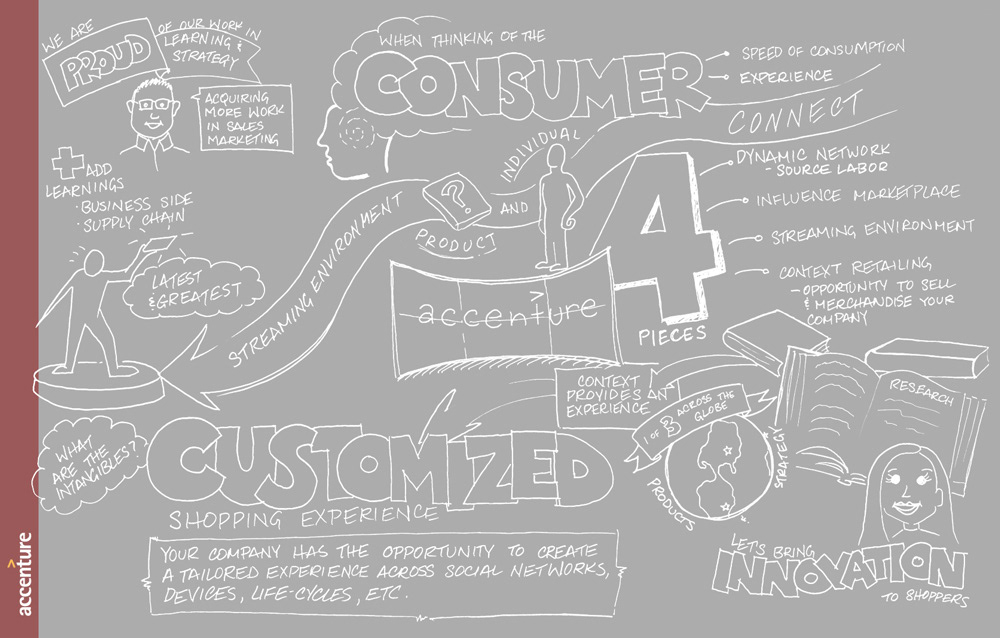 WE ARE
PROUD
OF OUR WORK IN
LEARNING &
STRATEGY
ACQUIRING
MORE WORK
IN SALES
MARKETING
+ ADD
LEARNINGS
· BUSINESS SIDE
· SUPPLY CHAIN
LATEST
& GREATEST
WHEN THINKING OF THE
CONSUMER
SPEED OF CONSUMPTION
EXPERIENCE
CONNECT
STREAMING ENVIRONMENT
?
PRODUCT
AND
INDIVIDUAL
accenture
4
PIECES
DYNAMIC NETWORK
- SOURCE LABOR
INFLUENCE MARKETPLACE
STREAMING ENVIRONMENT
CONTEXT RETAILING
- OPPORTUNITY TO SELL
& MERCHANDISE YOUR
COMPANY
WHAT
ARE THE
INTANGIBLES?
CUSTOMIZED
SHOPPING EXPERIENCE
CONTEXT
PROVIDES AN
EXPERIENCE
YOUR COMPANY HAS THE OPPORTUNITY TO CREATE
A TAILORED EXPERIENCE ACROSS SOCIAL NETWORKS,
DEVICES, LIFE-CYCLES, ETC.
1 OF 3 ACROSS THE
GLOBE
PRODUCTS
STRATEGY
RESEARCH
LET'S BRING
INNOVATION
TO SHOPPERS
accenture